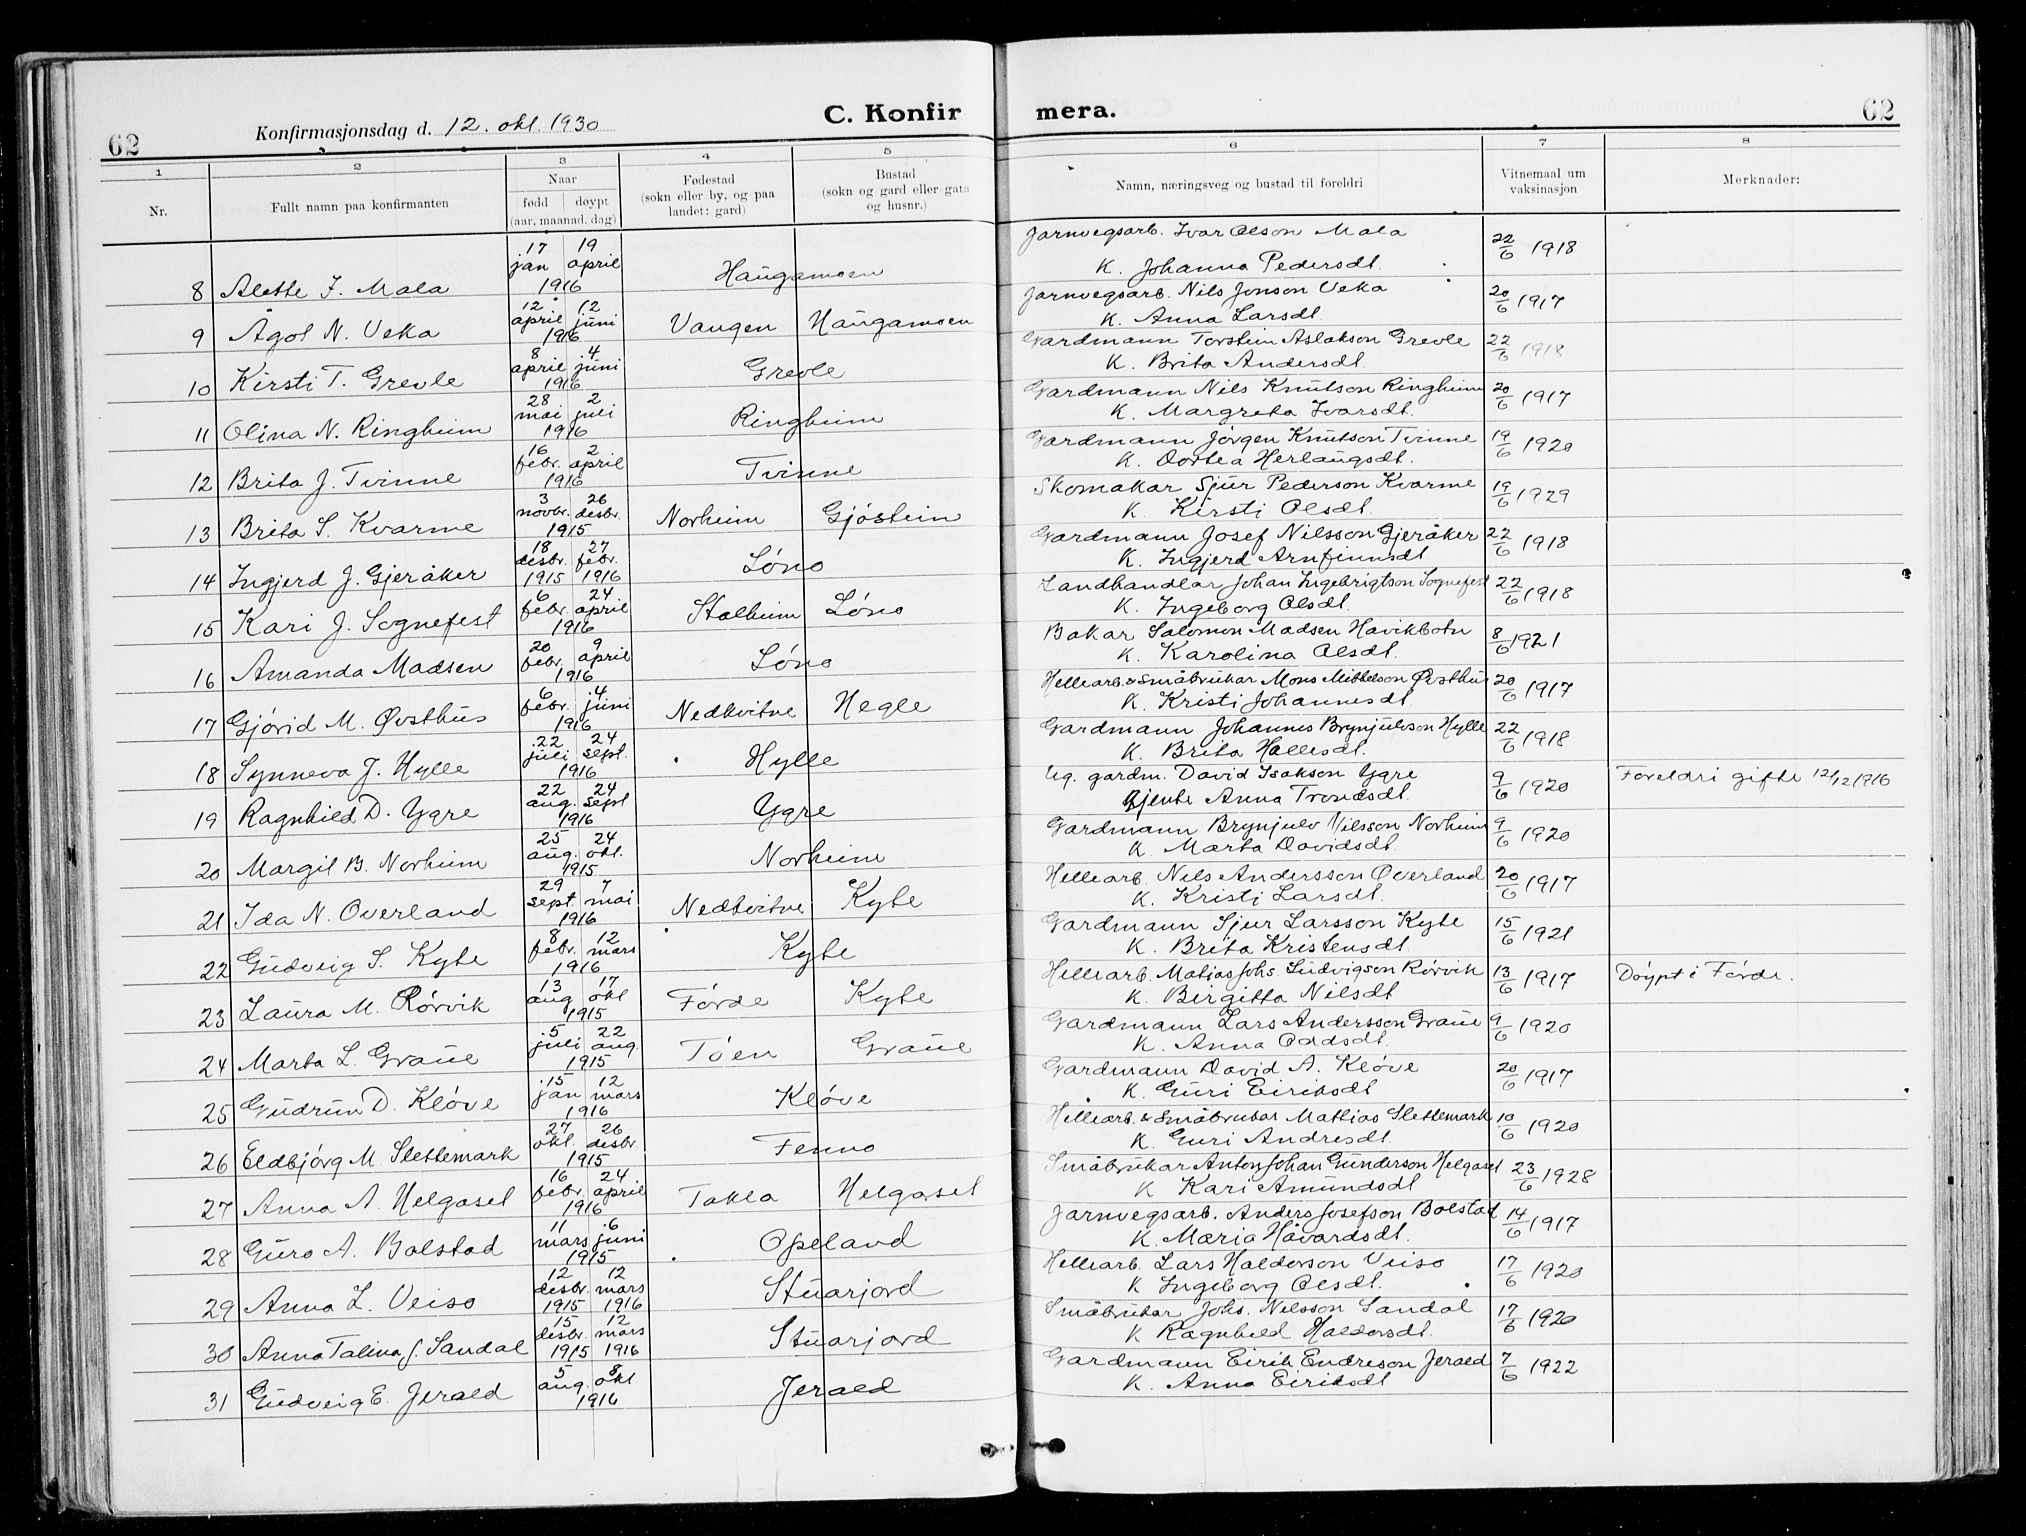 62 Konfirmasjonsdag d. 12. okt. 1930 C. Konfirmera. 62
1 2 3 4 5 6 7 8
Nr. Fullt namn paa konfirmanten Naar fødd døypt (aar, maanad, dag) Fødestad (sokn eller by, og paa landet: gard) Bustad (sokn og gard eller gata og husnr.) Namn, næringsveg og bustad til foreldri Vitnemaal um vaksinasjon Merknader:
8 Alette I. Mala 17 jan 19 april 1916 Haugamoen Jarnvegsarb. Ivar Olson Mala K. Johanna Pedersdt. 22/6 1918
9 Ågot N. Veka 12 april 12 juni 1916 Vangen Haugamoen Jarnvegsarb. Nils Jonson Veka K. Anna Larsdt. 20/6 1917
10 Kirsti T. Grevle 8 april 4 juni 1916 Grevle Gardmann Torstein Aslakson Grevle K. Brita Andersdt. 22/6 1918
11 Olina N. Ringheim 28 mai 2 juli 1916 Ringheim Gardmann Nils Knutson Ringheim K. Margreta Ivarsdt. 20/6 1917
12 Brita J. Tvinne 16 febr. 2 april 1916 Tvinne Gardmann Jørgen Knutson Tvinne K. Dortea Herlaugsdt. 19/6 1920
13 Brita S. Kvarme 3 novbr. 26 desbr. 1915 Norheim Gjøstein Skomakar Sjur Pederson Kvarme K. Kirsti Olsdt. 19/6 1929
14 Ingjerd J. Gjeråker 18 desbr. 1915 27 febr. 1916 Løno Gardmann Josef Nilsson Gjeråker K. Ingjerd Arnfinnsdt 22/6 1918
15 Kari J. Sognefest 6 febr. 24 april 1916 Stalheim Løno Landhandlar Johan Ingebrigtson Sognefest K. Ingeborg Olsdt. 22/6 1918
16 Amanda Madsen 20 febr. 9 april 1916 Løno Bakar Salomon Madsen Havikbotn K. Karolina Olsdt. 8/6 1921
17 Gjørid M. Øvsthus 6 febr. 4 juni 1916 Nedkvitne Hegle Hellearb. & småbrukar Mons Mikkelson Øvsthus K. Kristi Johannesdt 20/6 1917
18 Synneva J. Hylle 22 juli 24 sept. 1916 Hylle Gardmann Johannes Brynjulvson Hylle K. Brita Hallesdt. 22/6 1918
19 Ragnhild D. Ygre 22 aug. 24 sept 1916 Ygre Ug. gardm. David Isakson Ygre Gjente Anna Trondsdt. 9/6 1920 Foreldri gifte 12/12 1916
20 Margit B. Norheim 25 aug. 24 okt. 1915 Norheim Gardmann Brynjulv Nilsson Norheim K. Marta Davidsdt. 9/6 1920
21 Ida N. Overland 29 sept. 7 mai 1916 Nedkvitne Kyte Hellearb. Nils Andersson Overland K. Kristi Larsdt. 20/6 1917
22 Gudveig S. Kyte 8 febr. 12 mars 1916 Kyte Gardmann Sjur Larsson Kyte K. Brita Kristensdt. 15/6 1921
23 Laura M. Rørvik 13 aug 17 okt 1915 Førde Kyte Hellearb. Matias Johs. Ludvigson Rørvik K. Birgitta Nilsdt 13/6 1917 Døypt i Førde.
24 Marta L. Graue 5 juli 22 aug. 1915 Tøen Graue Gardmann Lars Andersson Graue K. Anna Oddsdt. 9/6 1920
25 Gudrun D. Kløve 15 jan 12 mars 1916 Kløve Gardmann David A. Kløve K. Guri Eiriksdt. 20/6 1917
26 Eldbjørg M. Slettemark 27 okt. 26 desbr. 1915 Fenno Hellearb. & småbrukar Mathias Slettemark K. Guri Andresdt. 10/6 1920
27 Anna A. Helgaset 16 febr. 24 april 1916 Takla Helgaset Småbrukar Anton Johan Gunderson Helgaset K Kari Amundsdt 23/6 1928
28 Guro A. Bolstad 11 mars 6 juni 1915 Opeland Jarnvegsarb. Anders Josefson Bolstad K. Maria Håvardsdt. 14/6 1917
29 Anna L. Veiso 12 desbr. 1915 12 mars 1916 Stuarjord Hellearb. Lars Halderson Veiso K Ingeborg Olsdt. 17/6 1920
30 Anna Talina J. Sandal 15 desbr. 1915 12 mars 1916 Stuarjord Småbrukar Johs. Nilsson Sandal K Ragnhild Haldorsdt. 17/6 1920
31 Gudveig E. Jerald 5 aug. 8 okt 1916 Jerald Gardmann Eirik Endreson Jerald K. Anna Eiriksdt 7/6 1922